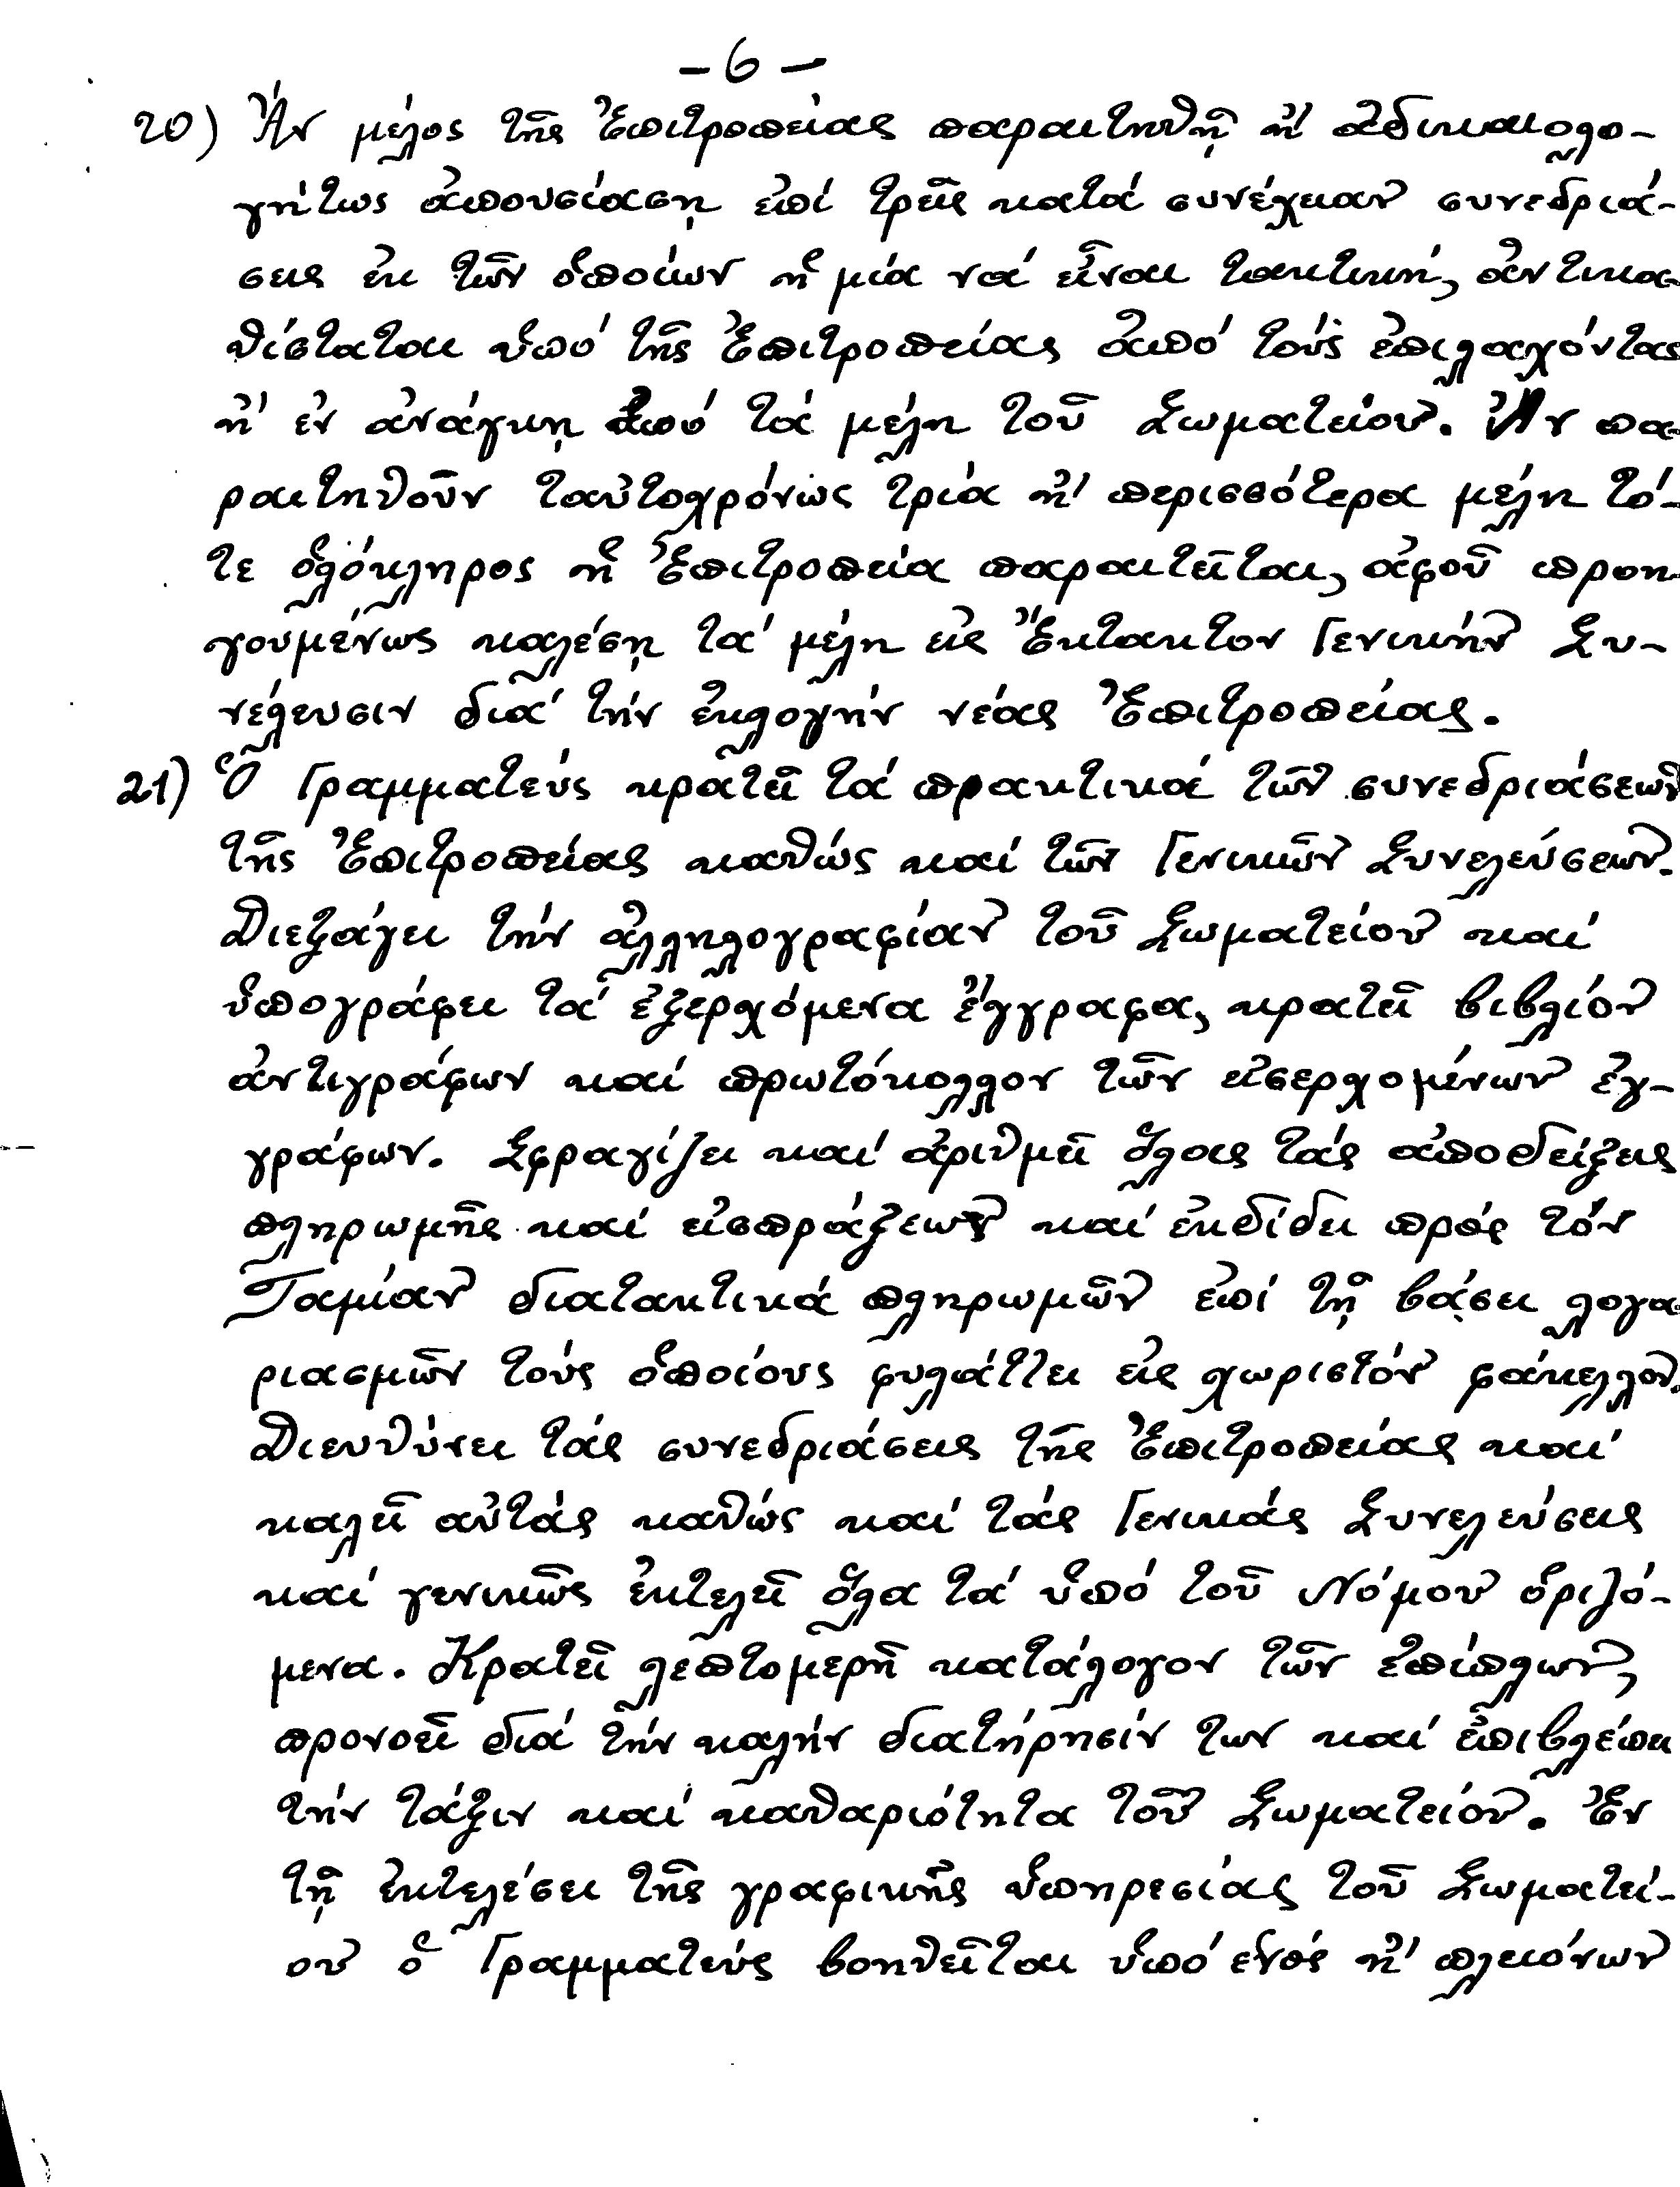 - 6 -
20) Ἄν μέλος τῆς Ἐπιτροπείας παραιτηθῇ ἤ ἀδικαιολο-
γήτως ἀπουσιάσῃ ἐπί τρεῖς κατά συνέχειαν συνεδριά-
σεις ἐκ τῶν ὁποίων ἡ μία νά εἶναι τακτική, ἀντικα-
θίσταται ὑπό τῆς Ἐπιτροπείας ἀπό τούς ἐπιλαχόντας
ἤ ἐν ἀνάγκῃ ἀπό τά μέλη τοῦ Σωματείου. Ἄν πα-
ραιτηθοῦν ταὐτοχρόνως τρία ἤ περισσότερα μέλη τό-
τε ὁλόκληρος ἡ Ἐπιτροπεία παραιτεῖται, ἀφοῦ προη-
γουμένως καλέσῃ τά μέλη εἰς Ἔκτακτον Γενικήν Συ-
νέλευσιν διά τήν ἐκλογήν νέας Ἐπιτροπείας.
21) Ὁ Γραμματεύς κρατεῖ τά πρακτικά τῶν συνεδριάσεων
τῆς Ἐπιτροπείας καθώς καί τῶν Γενικῶν Συνελεύσεων.
Διεξάγει τήν ἀλληλογραφίαν τοῦ Σωματείου καί
ὑπογράφει τά ἐξερχόμενα ἔγγραφα, κρατεῖ βιβλίον
ἀντιγράφων καί πρωτόκολλον τῶν εἰσερχομένων ἐγ-
γράφων. Σφραγίζει καί ἀριθμεῖ ὅλας τάς ἀποδείξεις
πληρωμῆς καί εἰσπράξεων καί ἐκδίδει πρός τόν
Ταμίαν διατακτικά πληρωμῶν ἐπί τῇ βάσει λογα-
ριασμῶν τούς ὁποίους φυλάττει εἰς χωριστόν φάκελλον.
Διευθύνει τάς συνεδριάσεις τῆς Ἐπιτροπείας καί
καλεῖ αὐτάς καθώς καί τάς Γενικάς Συνελεύσεις
καί γενικῶς ἐκτελεῖ ὅλα τά ὑπό τοῦ Νόμου ὁριζό-
μενα. Κρατεῖ λεπτομερῆ κατάλογον τῶν ἐπίπλων,
προνοεῖ διά τήν καλήν διατήρησίν των καί ἐπιβλέπει
τήν τάξιν καί καθαριότητα τοῦ Σωματείου. Ἐν
τῇ ἐκτελέσει τῆς γραφικῆς ὑπηρεσίας τοῦ Σωματεί-
ου ὁ Γραμματεύς βοηθεῖται ὑπό ἑνός ἤ πλειόνων